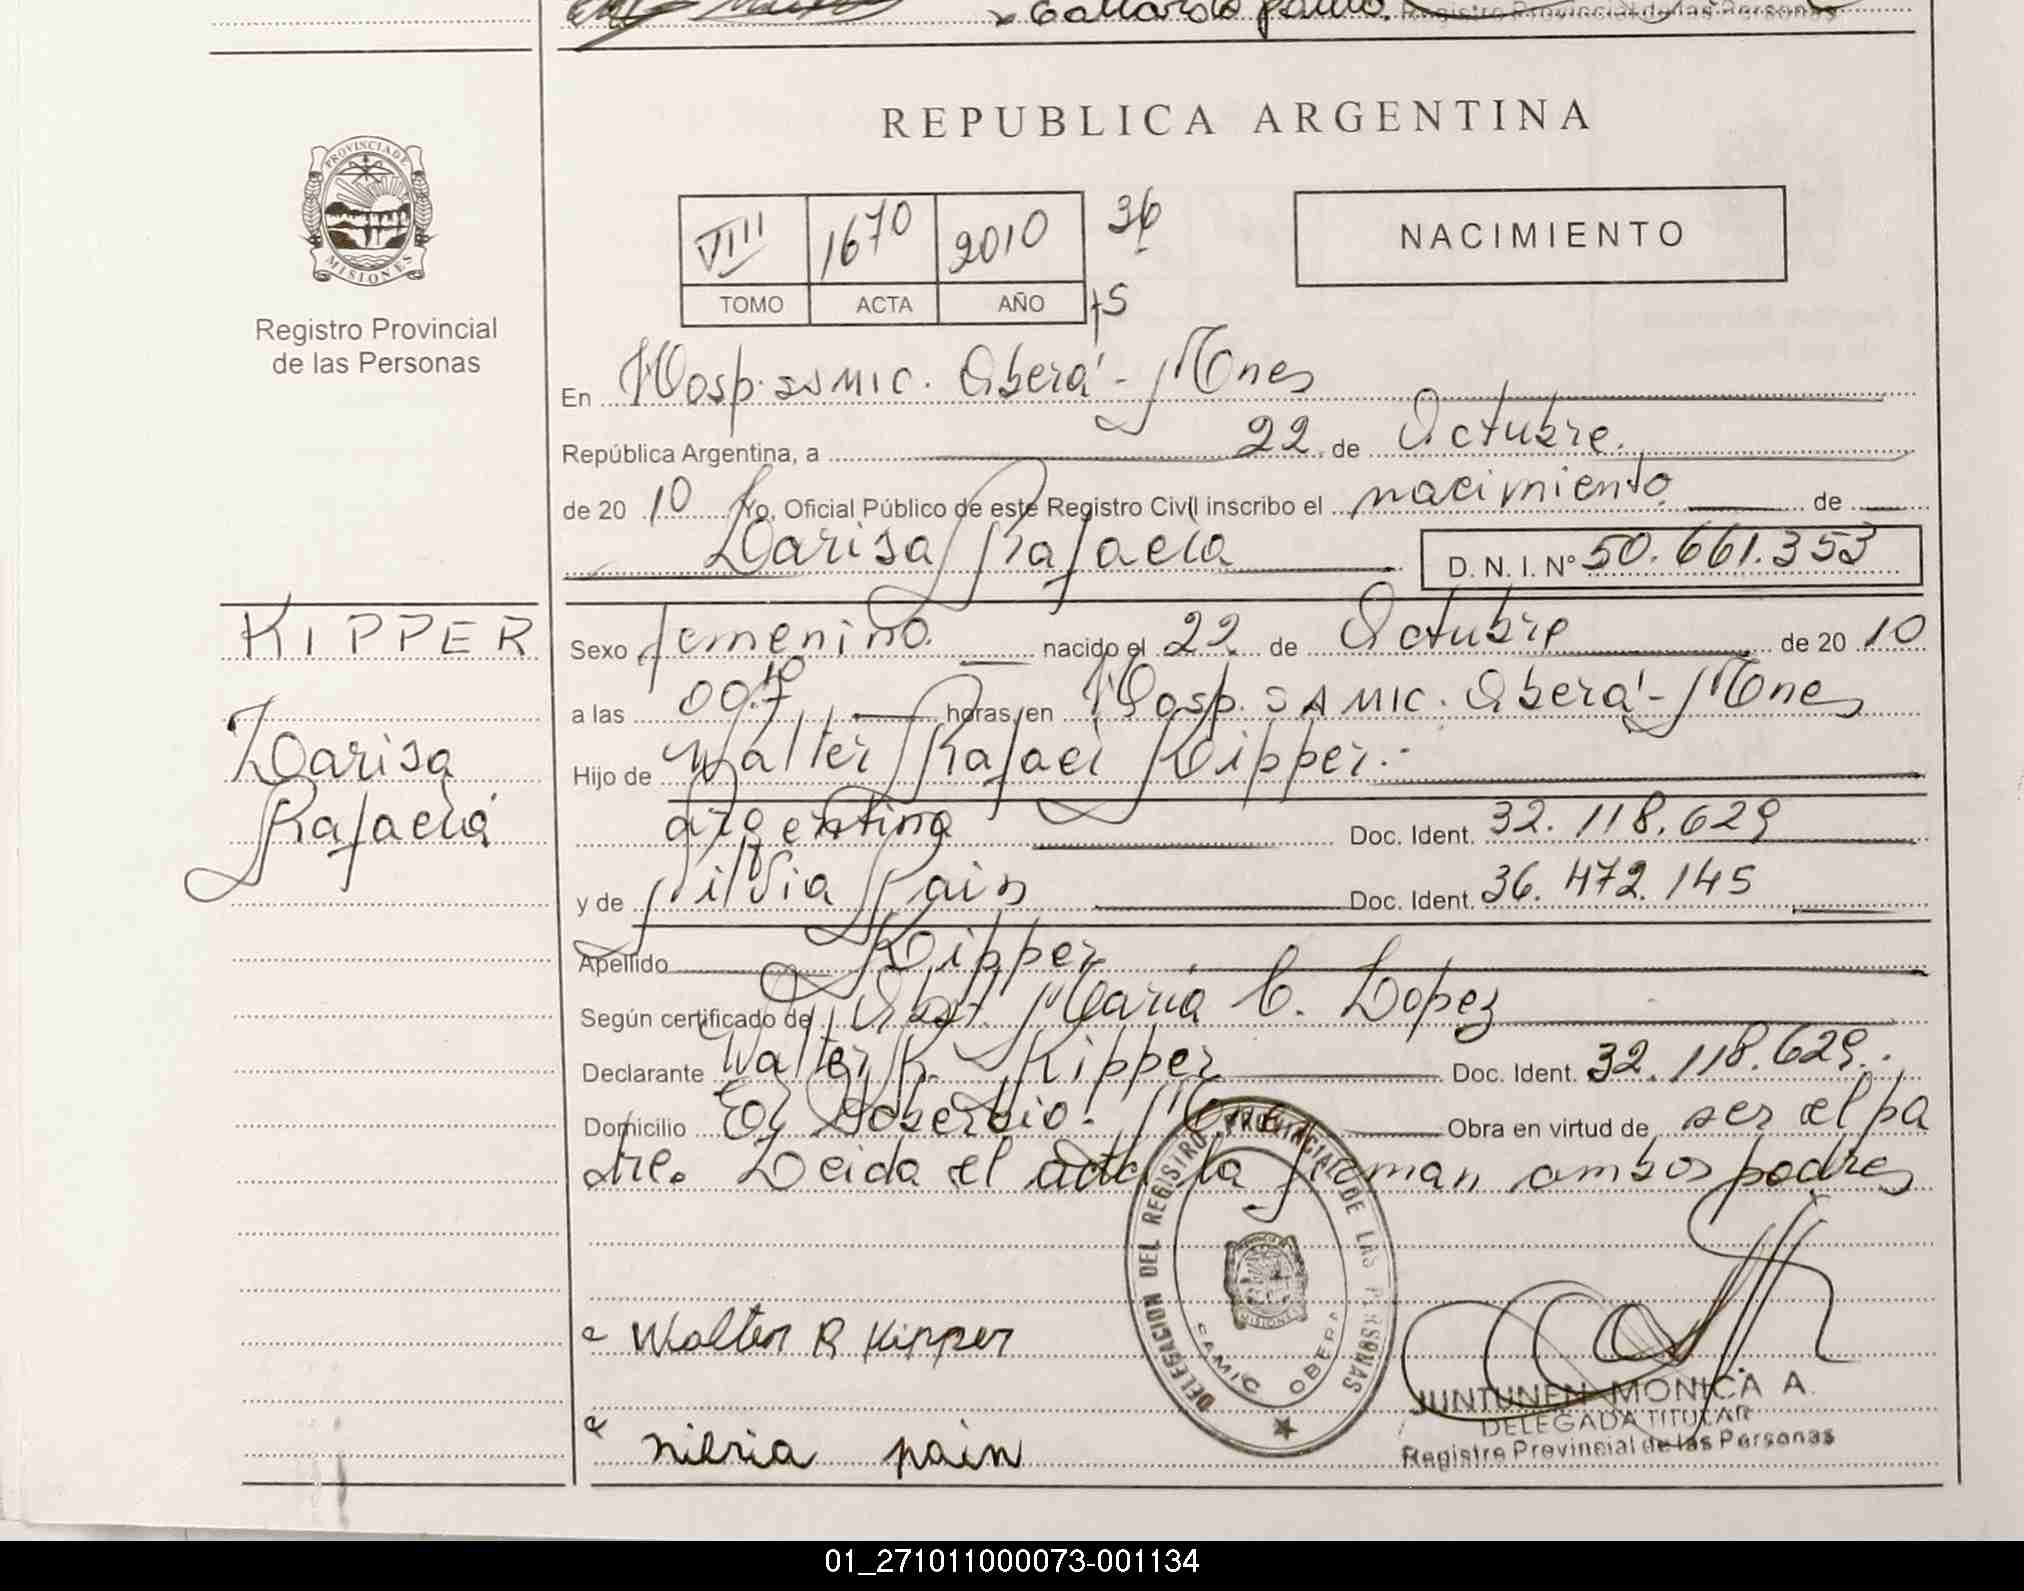 Gallardo Paulo. Registro Provincial de las Personas
REPUBLICA ARGENTINA
PROVINCIA DE
MISIONES
Registro Provincial
de las Personas
VIII 1670 2010 36
TOMO ACTA AÑO 15
NACIMIENTO
En Hosp. SAMIC. Oberá - Mnes
República Argentina, a 22 de Octubre.
de 20 10 Yo, Oficial Público de este Registro Civil inscribo el nacimiento de
Larisa Rafaela D. N. I. Nº 50.661.353
KIPPER
Larisa
Rafaela
Sexo femenino. nacido el 22 de Octubre de 20 10
a las horas, en Hosp. SAMIC. Oberá - Mnes
Hijo de Walter Rafael Kipper.-
argentino Doc. Ident. 32.118.629
y de Silvia Pain Doc. Ident. 36.472.145
Apellido Kipper
Según certificado de Obst. María C. Lopez
Declarante Walter R. Kipper Doc. Ident. 32.118.629.
Domicilio El Soberbio. Mnes Obra en virtud de ser el pa
dre. Leida el acta la firman ambos padres
DELEGACION DEL REGISTRO PROVINCIAL DE LAS PERSONAS
SAMIC OBERA
Walter R Kipper
silvia pain
JUNTUNEN MONICA A.
DELEGADA TITULAR
Registro Provincial de las Personas
01_271011000073-001134